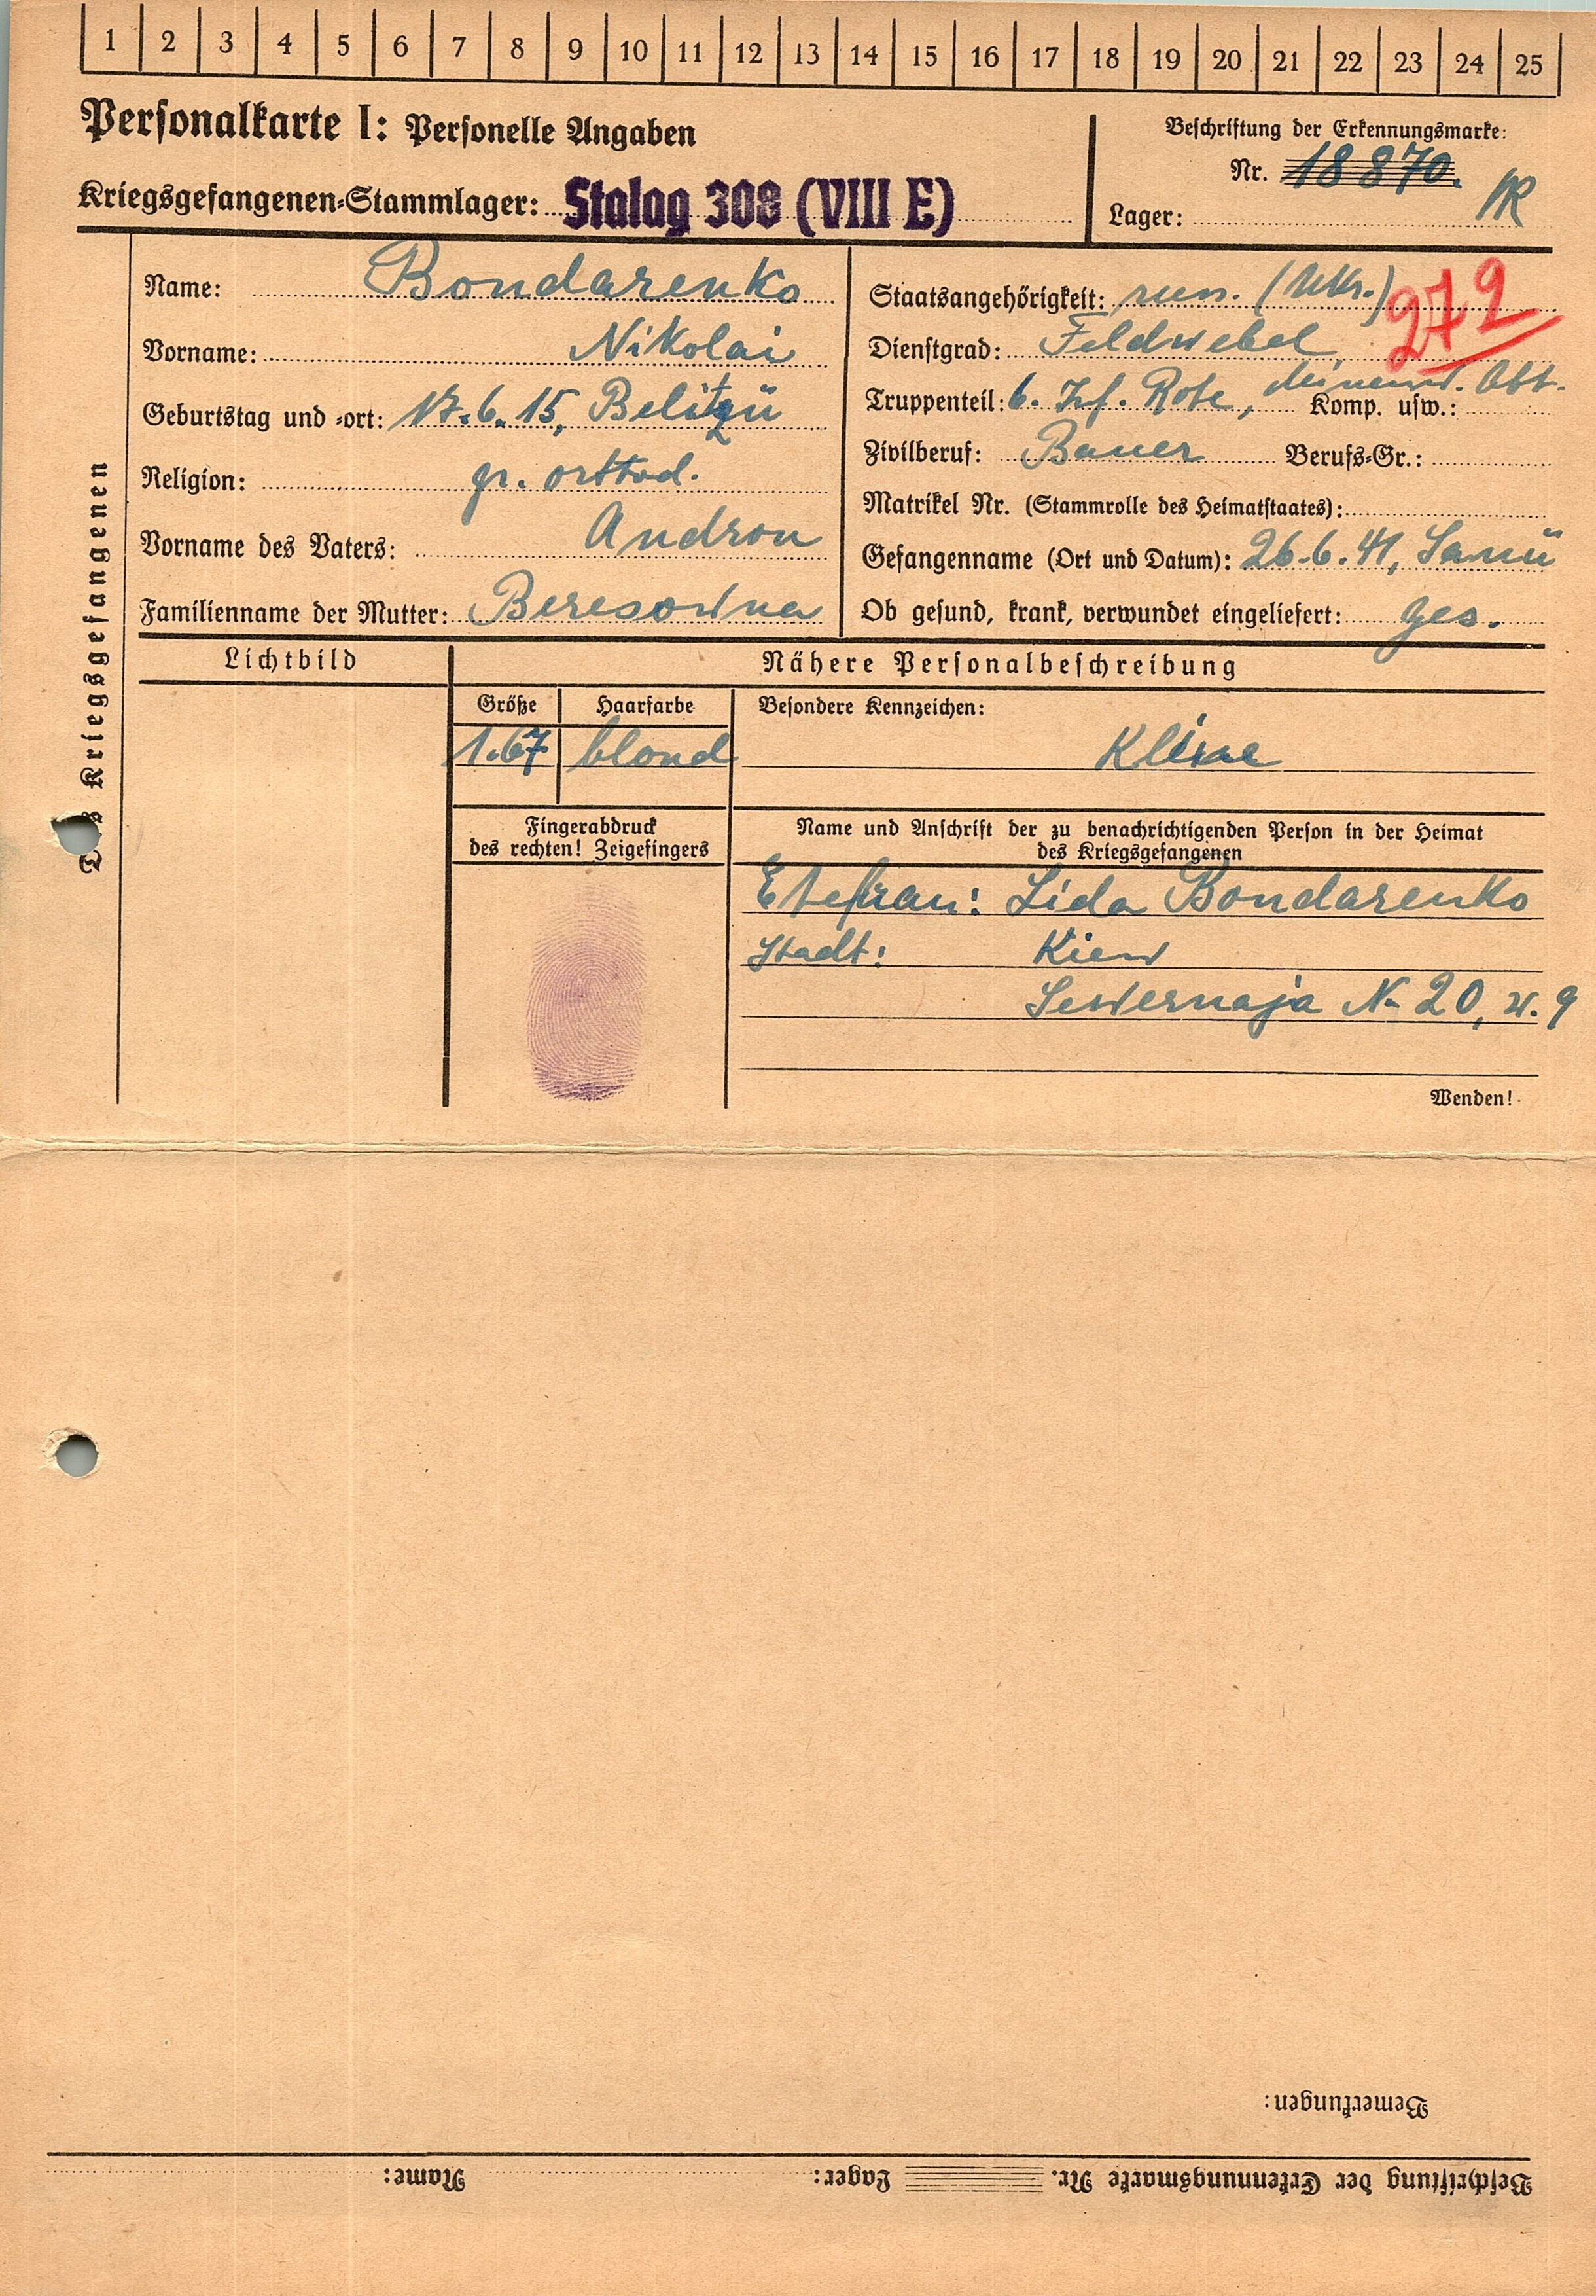 1 2 3 4 5 6 7 8 9 10 11 12 13 14 15 16 17 18 19 20 21 22 23 24 25
Personalkarte I: Personelle Angaben
Beschriftung der Erkennungsmarke:
Nr. 18870.
Kriegsgefangenen-Stammlager: Stalag 308 (VIII E)
Lager:
Des Kriegsgefangenen
Name: Bondarenko
Vorname: Nikolai
Geburtstag und -ort: 17.6.15,
Religion: gr. orthod.
Vorname des Vaters: Andron
Familienname der Mutter: Beresowna
Staatsangehörigkeit: russ. (Ukr.) 279
Dienstgrad: Feldwebel
Truppenteil: 6. Inf. Rote, Abt. Komp. usw.:
Zivilberuf: Bauer Berufs-Gr.:
Matrikel Nr. (Stammrolle des Heimatstaates):
Gefangenname (Ort und Datum): 26.6.41,
Ob gesund, krank, verwundet eingeliefert: ges.
Lichtbild
Nähere Personalbeschreibung
Größe Haarfarbe Besondere Kennzeichen:
1.67 blond
Fingerabdruck
des rechten! Zeigefingers
Name und Anschrift der zu benachrichtigenden Person in der Heimat
des Kriegsgefangenen
Ehefrau: Lida Bondarenko
Stadt: Kiew
Sewernaja N- 20, w. 9
Wenden!
Bemerkungen:
Beschriftung der Erkennungsmarke Nr. Lager: Name: